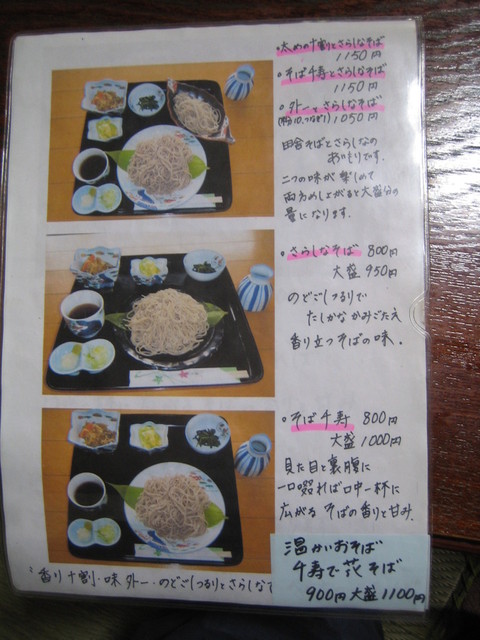 太めの十割とさらしなそば
1150円
そば千寿とさらしなそば
1150円
外一とさらしなそば
1050円
田舎そばとさらしなの
あいもりです。
二つの味が楽しめて
両方めしあがると大盛分の
量になります。
さらしなそば 800円
大盛 950円
のどごしつるりで
たしかなかみごたえ
香り立つそばの味.
そば千寿 800円
大盛 1000円
見た目と裏腹に
一口啜れば口中一杯に
広がる そばの香りと甘み.
温かいおそば
千寿で花そば
900円 大盛 1100円
香り十割・味 外一・のどごしつるりとさらしな